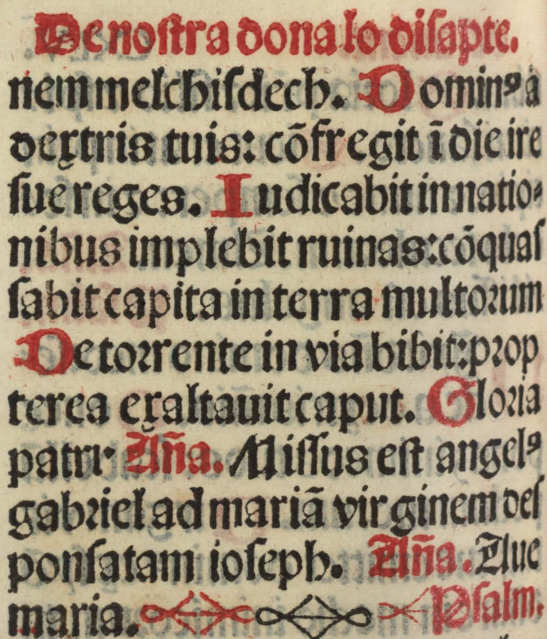 De nostra dona lo disapte.
nem melchisdech. Dominꝰ a
dextris tuis: cõfregit ĩ die ire
sue reges. Iudicabit in natio⸗
nibus implebit ruinas: cõquas
sabit capita in terra multorum
De torrente in via bibit: prop
terea exaltauit caput. Gloria
patri· Aña. Missus est angelꝰ
gabriel ad mariã virginem des
ponsatam ioseph. Aña. Aue
maria. Psalm.